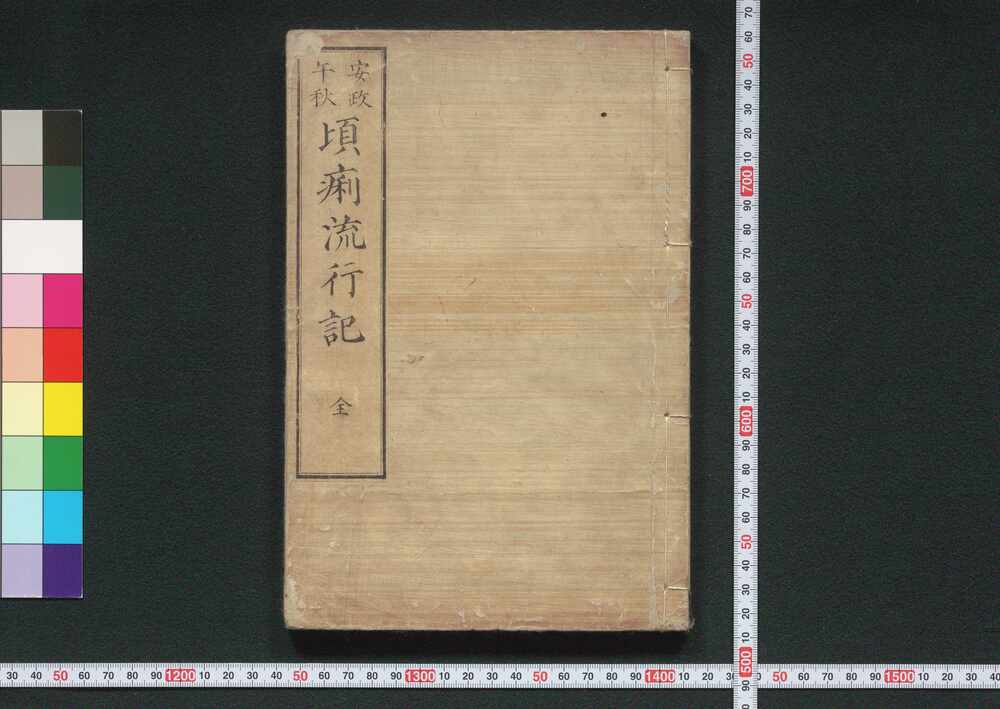 安政
午秋
頃痢流行記 全
70 60 50 40 30 20 10 700 90 80 70 60 50 40 30 20 10 600 90 80 70 60 50 40 30 20 10 500 90
30 40 50 60 70 80 90 1200 10 20 30 40 50 60 70 80 90 1300 10 20 30 40 50 60 70 80 90 1400 10 20 50 60 70 80 90 1500 10 20 30 40